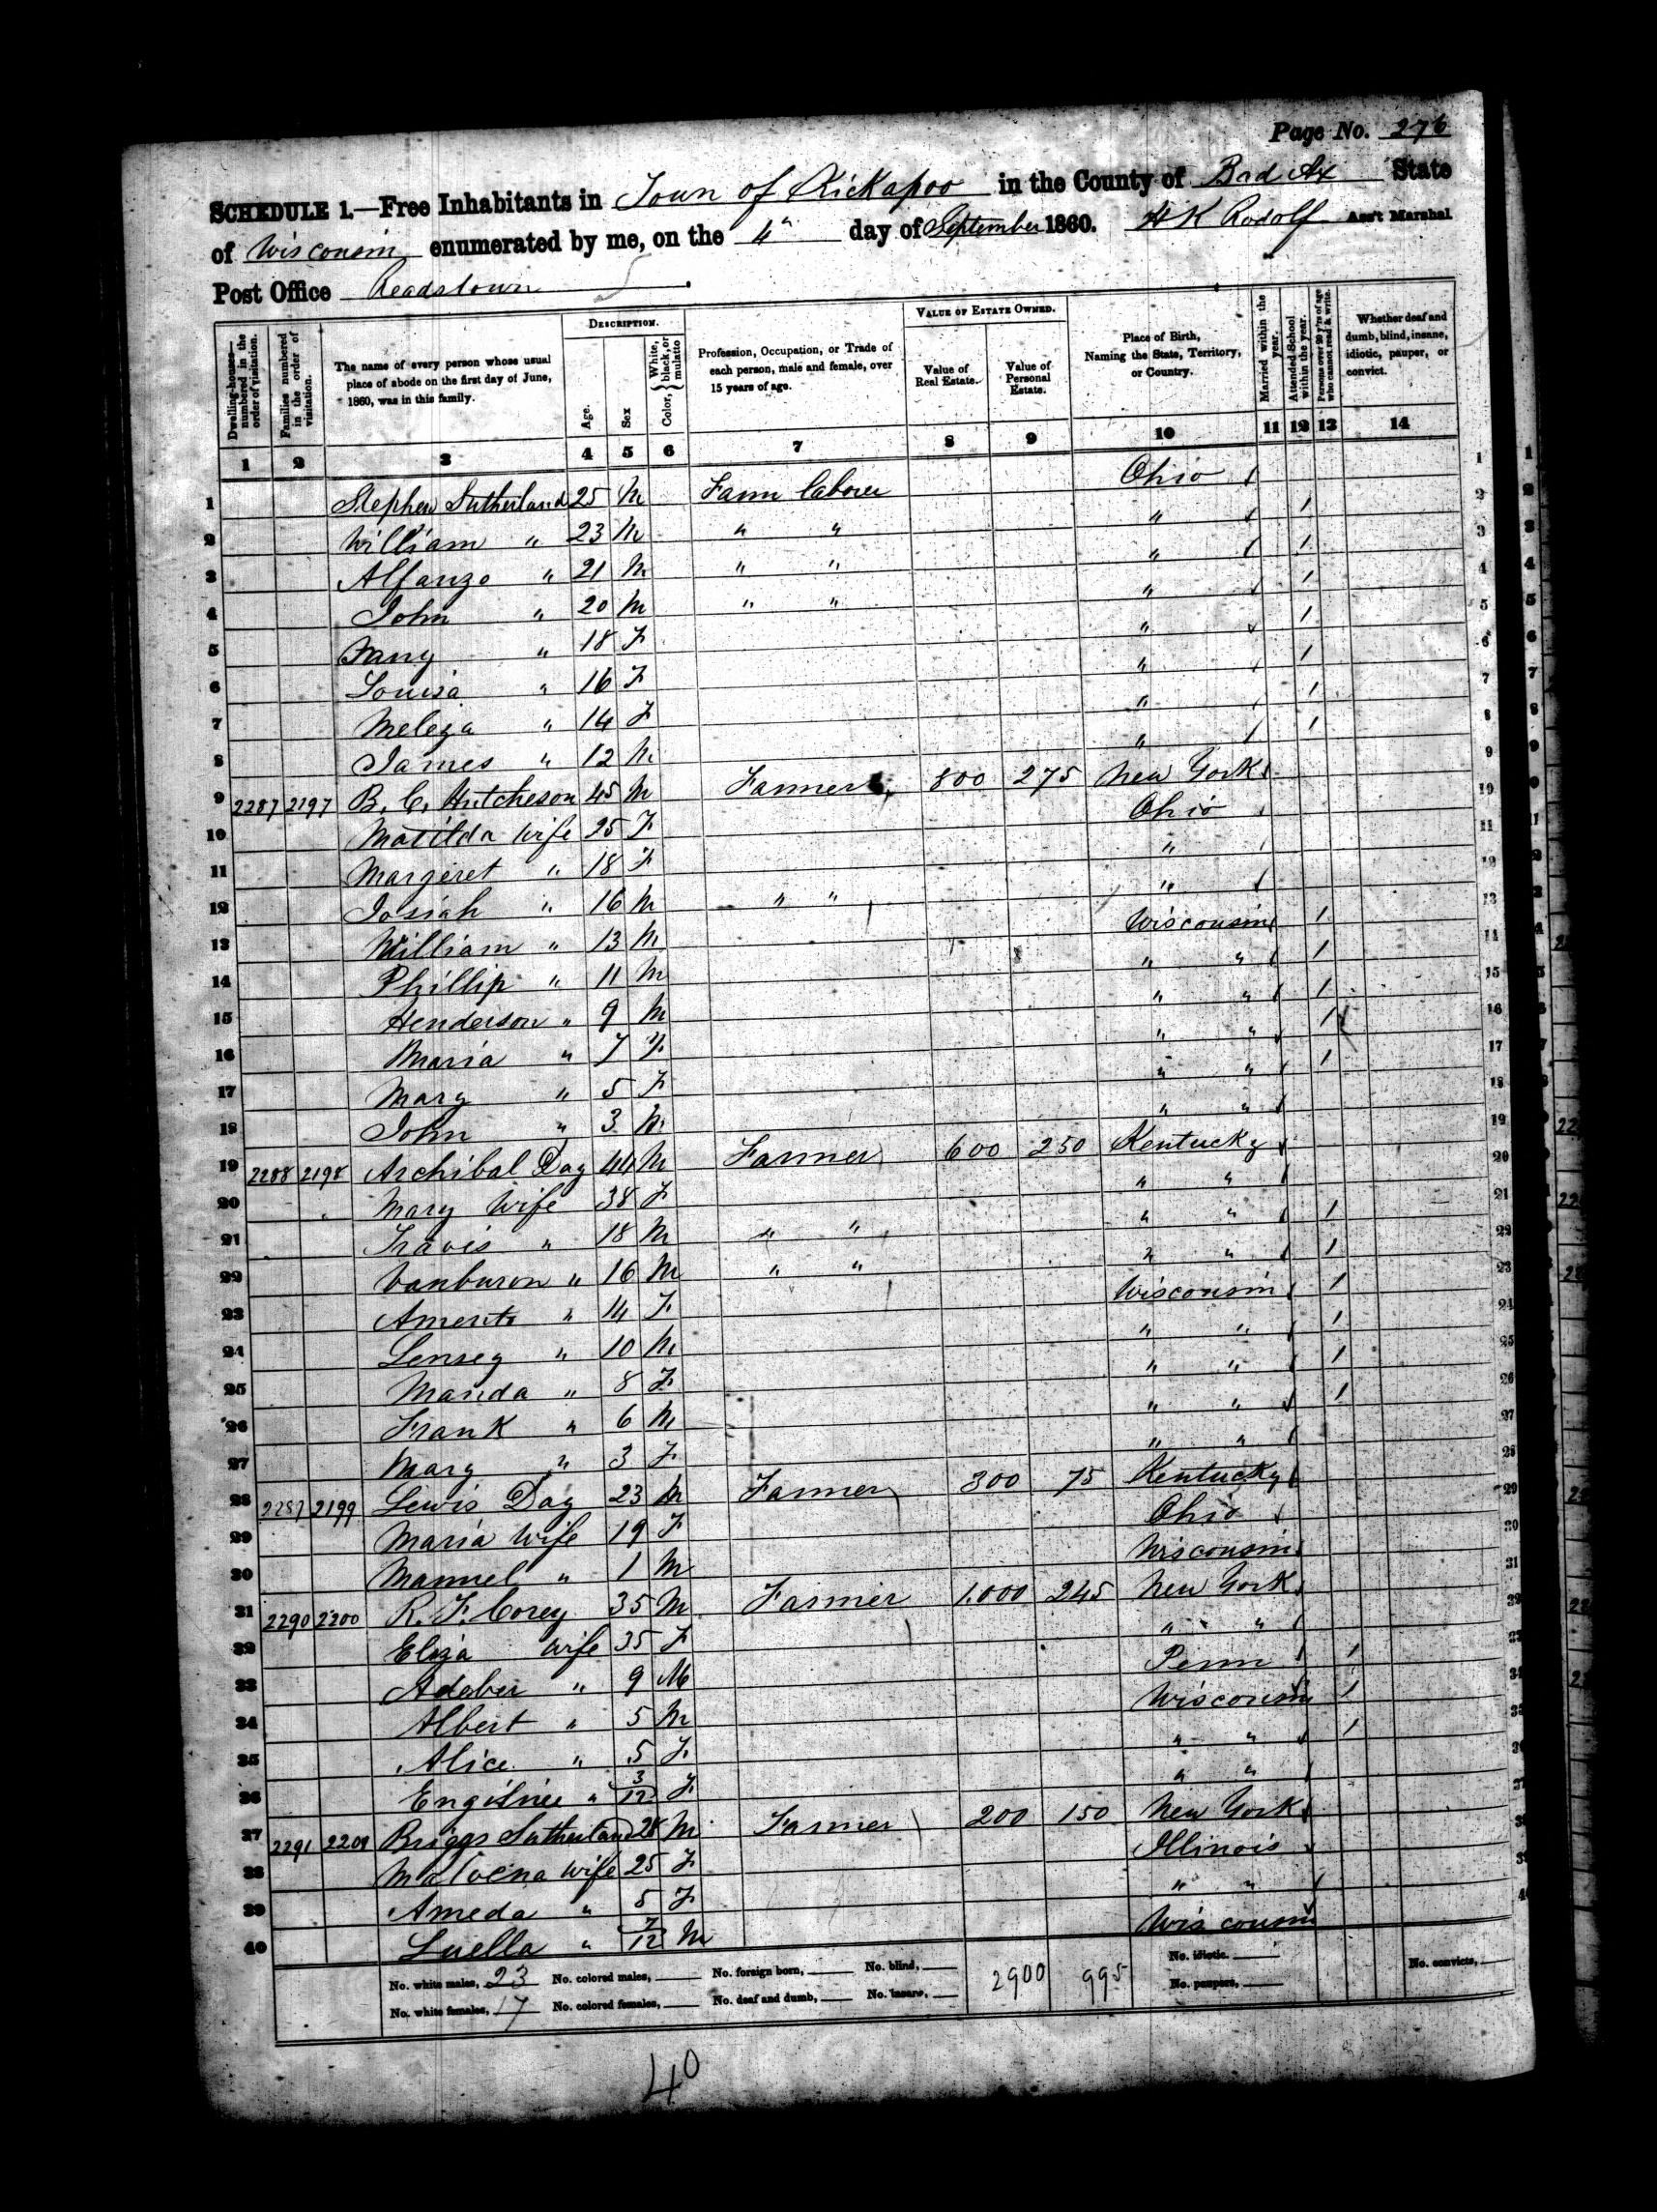 Page No. 276
SCHEDULE 1.—Free Inhabitants in Town of Kickapoo in the County of Bad Ax State
of Wisconsin enumerated by me, on the 4" day of September 1860. H K Rodolf Ass't Marshal
Post Office Readstown
Dwelling-houses—numbered in the order of visitation. Families numbered in the order of visitation. The name of every person whose usual place of abode on the first day of June, 1860, was in this family. DESCRIPTION. Age. Sex Color, White, black, or mulatto Profession, Occupation, or Trade of each person, male and female, over 15 years of age. VALUE OF ESTATE OWNED. Value of Real Estate. Value of Personal Estate. Place of Birth, Naming the State, Territory, or Country. Married within the year. Attended School within the year. Persons over 20 y'rs of age who cannot read & write. Whether deaf and dumb, blind, insane, idiotic, pauper, or convict.
1 2 3 4 5 6 7 8 9 10 11 12 13 14
1 Stephen Sutherland 25 M Farm laborer Ohio 1
2 William " 23 M " " " 1 2
3 Alfanzo " 21 M " " " 1 3
4 John " 20 M " " " 1 4
5 Fany " 18 F " 1 5
6 Louisa " 16 F " 1 6
7 Meleza " 14 F " 1 7
8 James " 12 M " 1 8
9 2287 2197 B. C. Hutcheson 45 M Farmer 800 275 New York 9
10 Matilda Wife 25 F Ohio 10
11 Margeret " 18 F " 11
12 Josiah " 16 M " " " 12
13 William " 13 M Wisconsin 1 13
14 Phillip " 11 M " " 1 14
15 Henderson " 9 M " " 1 15
16 Maria " 7 F " " 1 16
17 Mary " 5 F " " 1 17
18 John " 3 M " " 18
19 2288 2198 Archibal Day 44 M Farmer 600 250 Kentucky 19
20 Mary Wife 38 F " " 20
21 Travis " 18 M " " " " 1 21
22 Vanburon " 16 M " " " " 1 22
23 Amerite " 14 F Wisconsin 1 23
24 Lensey " 10 M " " 1 24
25 Manda " 8 F " " 1 25
26 Frank " 6 M " " 1 26
27 Mary " 3 F " " 27
28 2287 2199 Lewis Day 23 M Farmer 300 75 Kentucky 28
29 Maria Wife 19 F Ohio 29
30 Manuel " 1 M Wisconsin 30
31 2290 2200 R. F. Corey 35 M Farmer 1.000 245 New York 31
32 Eliza Wife 35 F " " 32
33 Adober " 9 M Penn 1 33
34 Albert " 5 M Wisconsin 1 34
35 Alice " 5 F " " 1 35
36 " 3/12 F " " 36
37 2291 2201 Briggs Sutherland 28 M Farmer 200 150 New York 37
38 Malvena Wife 25 F Illinois 38
39 Ameda " 5 F " " 39
40 Luella " 7/12 M Wisconsin 40
No. white males, 23 No. colored males, No. foreign born, No. blind, 2900 995 No. idiotic. No. convicts,
No. white females, 17 No. colored females, No. deaf and dumb, No. insane, No. paupers,
40